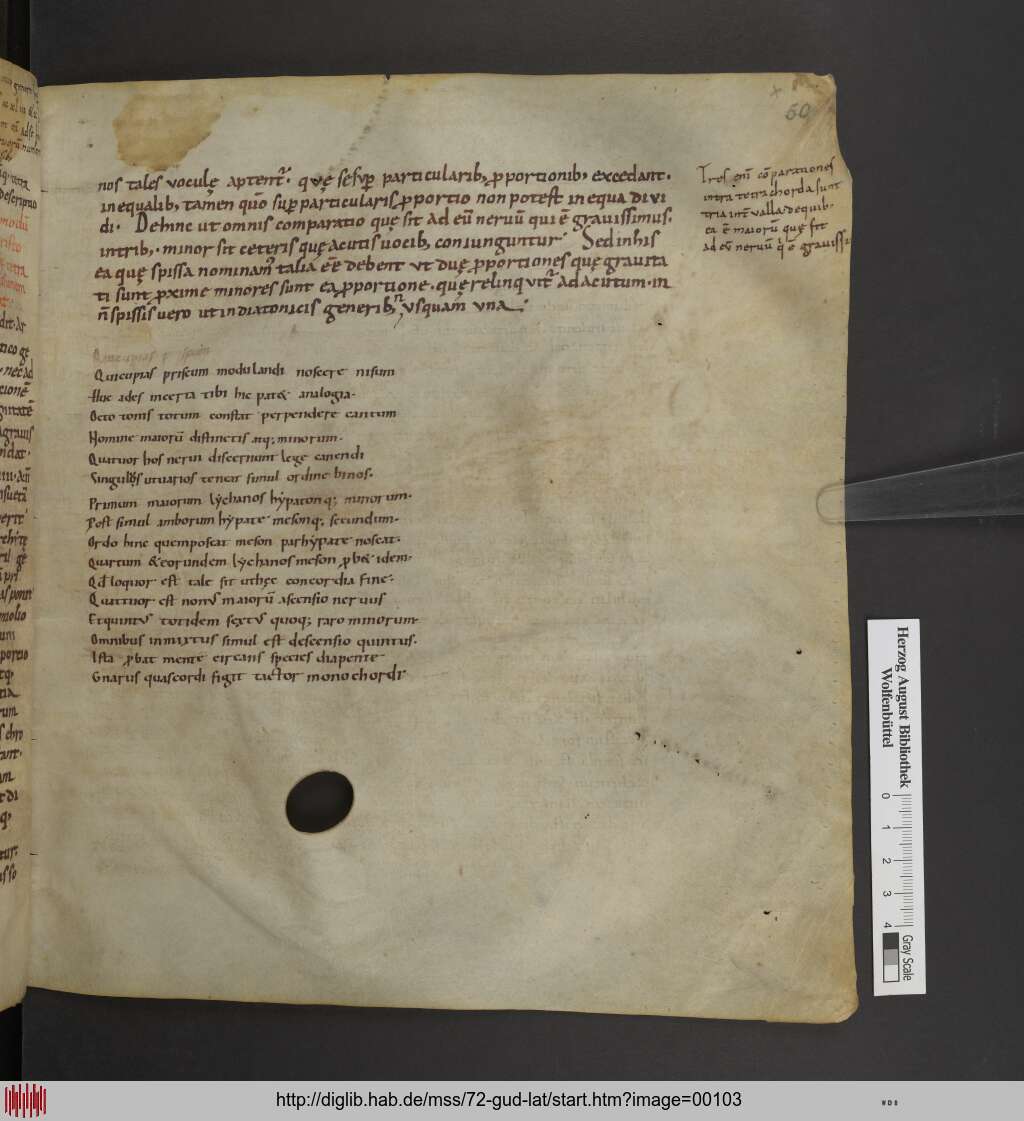 60
nos tales voculę aptent᷑· quę sesup particularib, pportionib, excedant·
inequalib, tam̅en quo̅ sup particularis pportio non potest in equa divi
di· Dehinc ut omnis comparatio quę sit ad eu̅ neruu̅ qui e̅ gravissimus·
intrib,· minor sit ceteris quę acutis uocib, coniunguntur Sed in his
ea quę spissa nominam᷑ talia e̅e̅ debent ut duę pportiones quę gravita
ti sunt pxime minores sunt ea pportione· quę relinquit᷑ ad acutum· in
n̅ spissis uero ut in diatonicis generib, nusquam̅ una·
Tres eni̅ co̅parationes
intra tetrachorda sunt
tria int᷑ualla de quib·
ea e̅ maioru̅ quę sit
ad eu̅ neruu̅ q̇ e̅ graviss
Quicupias priscum modulandi noscere nisum
Huc ades incerta tibi hic pat& analogia·
Octo tonis totum constat perpendere cantum
Nomine maioru̅ distinctis atq; minorum·
Quatuor hos nerui discernunt lege canendi
Singulos utuarios teneat simul ordine binos·
Primum maiorum lychanos hypaton q; minorum·
Post simul amborum hypate meson q; secundum·
Ordo hinc quem poscat meson parhypate noscat·
Quartum & eorundem lychanos meson pb& idem·
Qd̅ loquor est tale sit uthęc concordia fine·
Quattuor est nonus maioru̅ ascensio neruus
Et quintus totidem sextus quoq; raro minorum·
Omnibus in mixtus simul est descensio quintus·
Ista pbat mente circans species diapente
Gnarus quas cordi figit tactor monochordi
Herzog August Bibliothek
Wolfenbüttel
0 1 2 3 4
Gray Scale
http://diglib.hab.de/mss/72-gud-lat/start.htm?image=00103